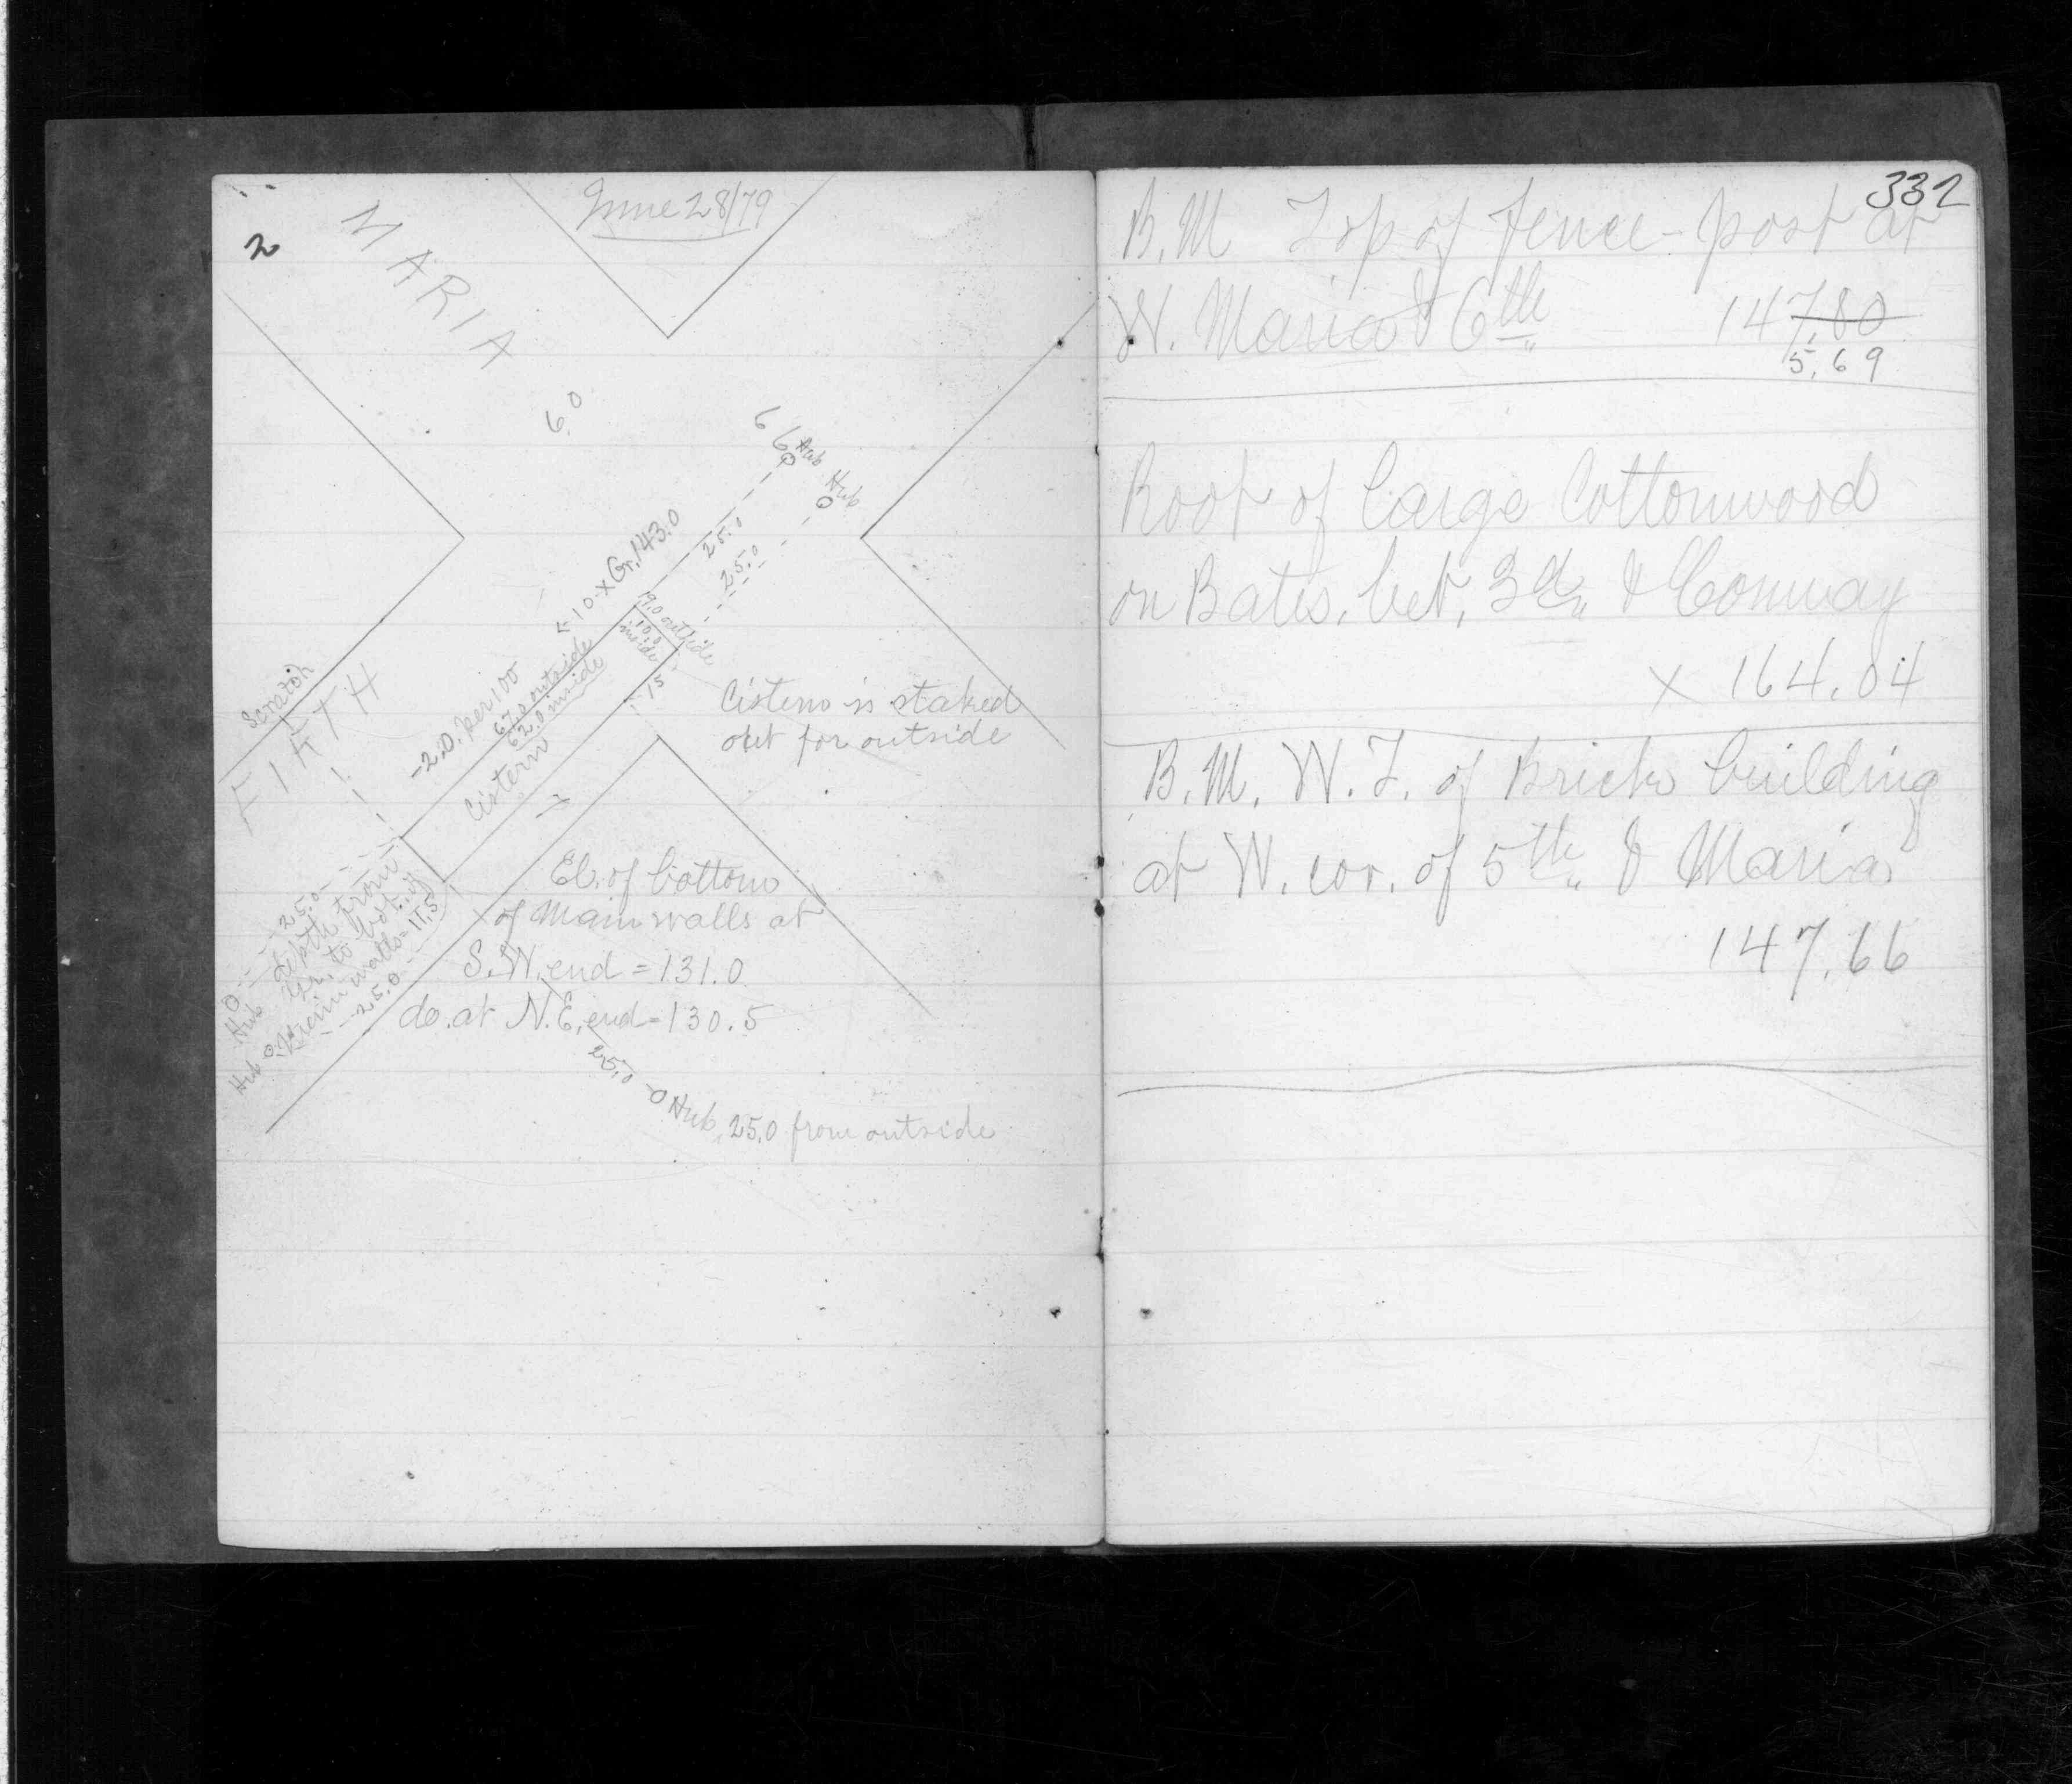 2
June 28/79
MARIA
60
66
Hub
Hub
25.0
25.0
10 x Gr. 143.0
19.0 outside
10.0
inside
15
-2.0. per 100
67.0 outside
62.0 inside
Cistern
Scratch
FIFTH
Cistern is staked
out for outside
El. of bottom
of Main walls at
S.W. end = 131.0
do. at N.E. end = 130.5
25.0
Depth from
Gr. to bot. of
Main walls = 11.5
25.0
Hub
Hub
25.0
Hub 25.0 from outside
332
B.M Top of fence-post at
W. Maria & 6th 147.80
5.69
Root of large Cottonwood
on Bates, bet. 3d & Conway
x 164.04
B.M. W.T. of Brick building
at W. cor. of 5th & Maria
147.66